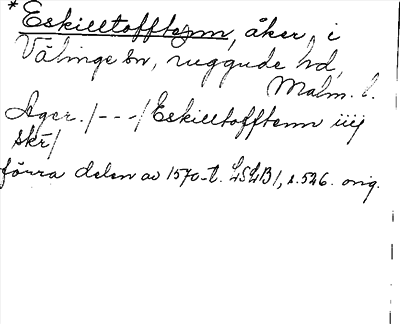 *Eskilltofftenn, åker, i
Välinge sn, ruggude hd,
Malm. l.
Ager. /---/ Eskilltofftenn iiij
skr/
förra delen av 1570-t. LSLB1, s. 526. orig.